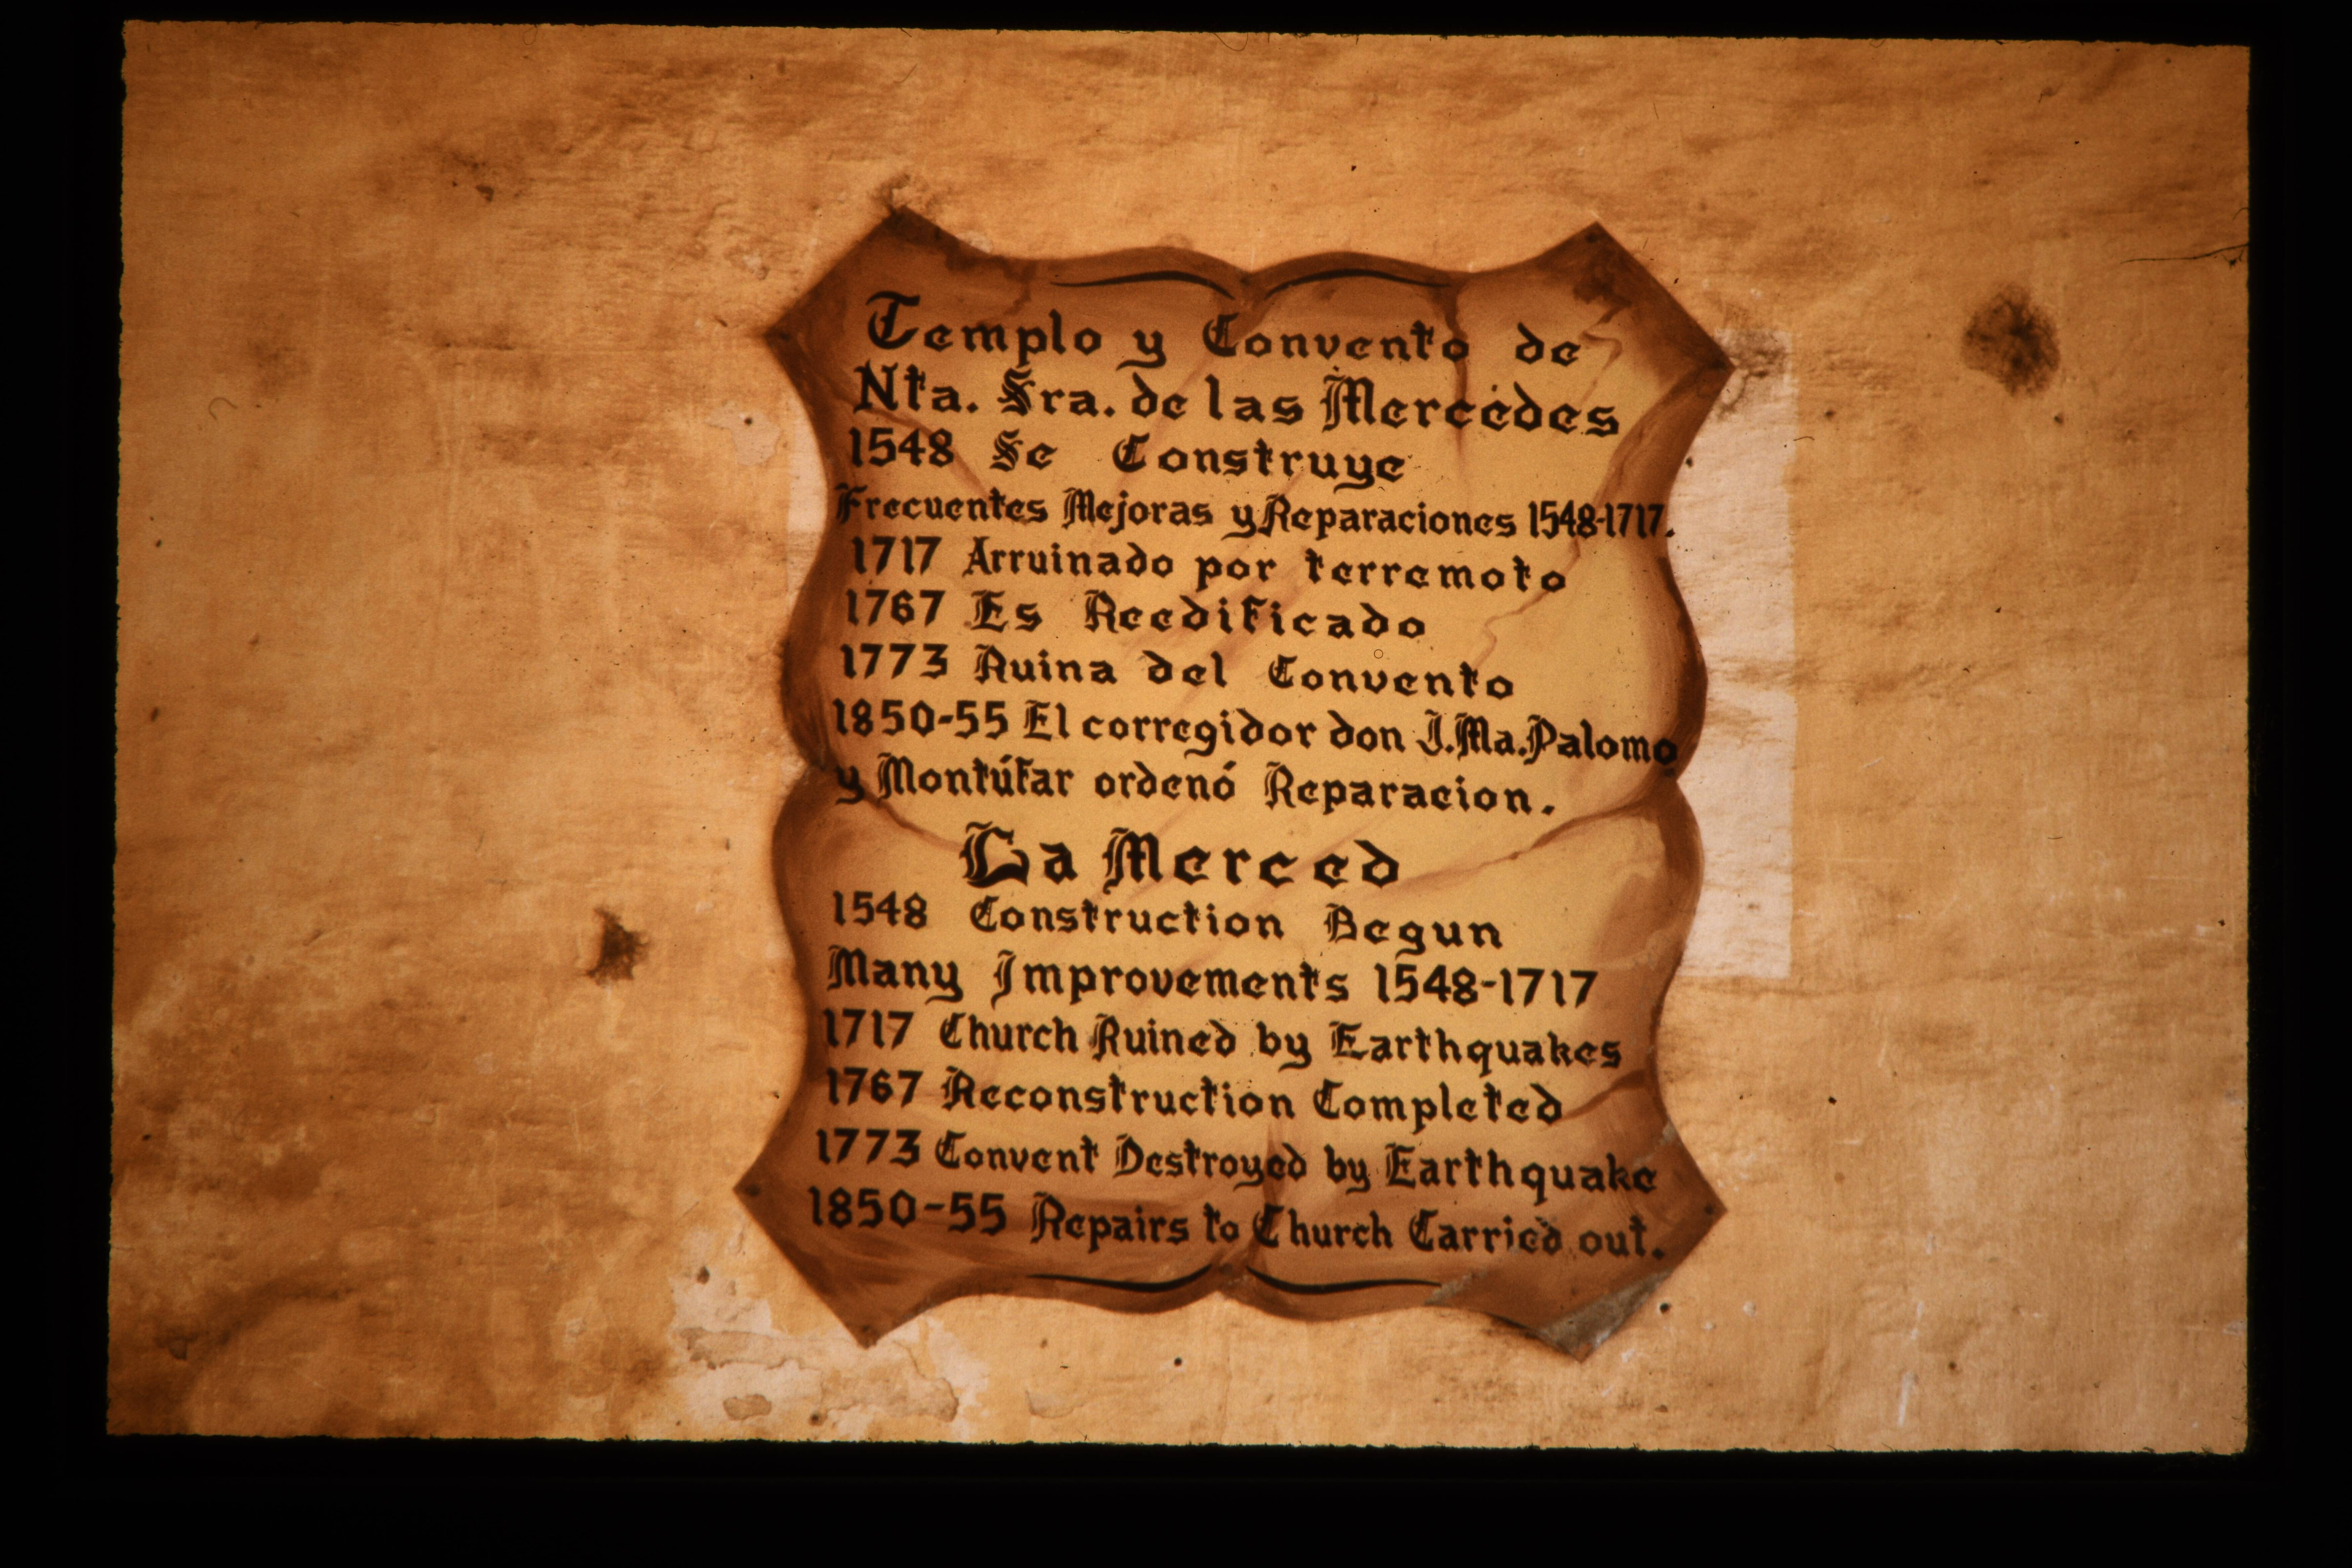 Templo y Convento de
Nta. Sra. de las Mercedes
1548 Se Construye
Frecuentes Mejoras y Reparaciones 1548-1717.
1717 Arruinado por terremoto
1767 Es Reedificado
1773 Ruina del Convento
1850-55 El corregidor don J.Ma.Palomo
y Montúfar ordenó Reparacion.
La Merced
1548 Construction Begun
Many Improvements 1548-1717
1717 Church Ruined by Earthquakes
1767 Reconstruction Completed
1773 Convent Destroyed by Earthquake
1850-55 Repairs to Church Carried out.